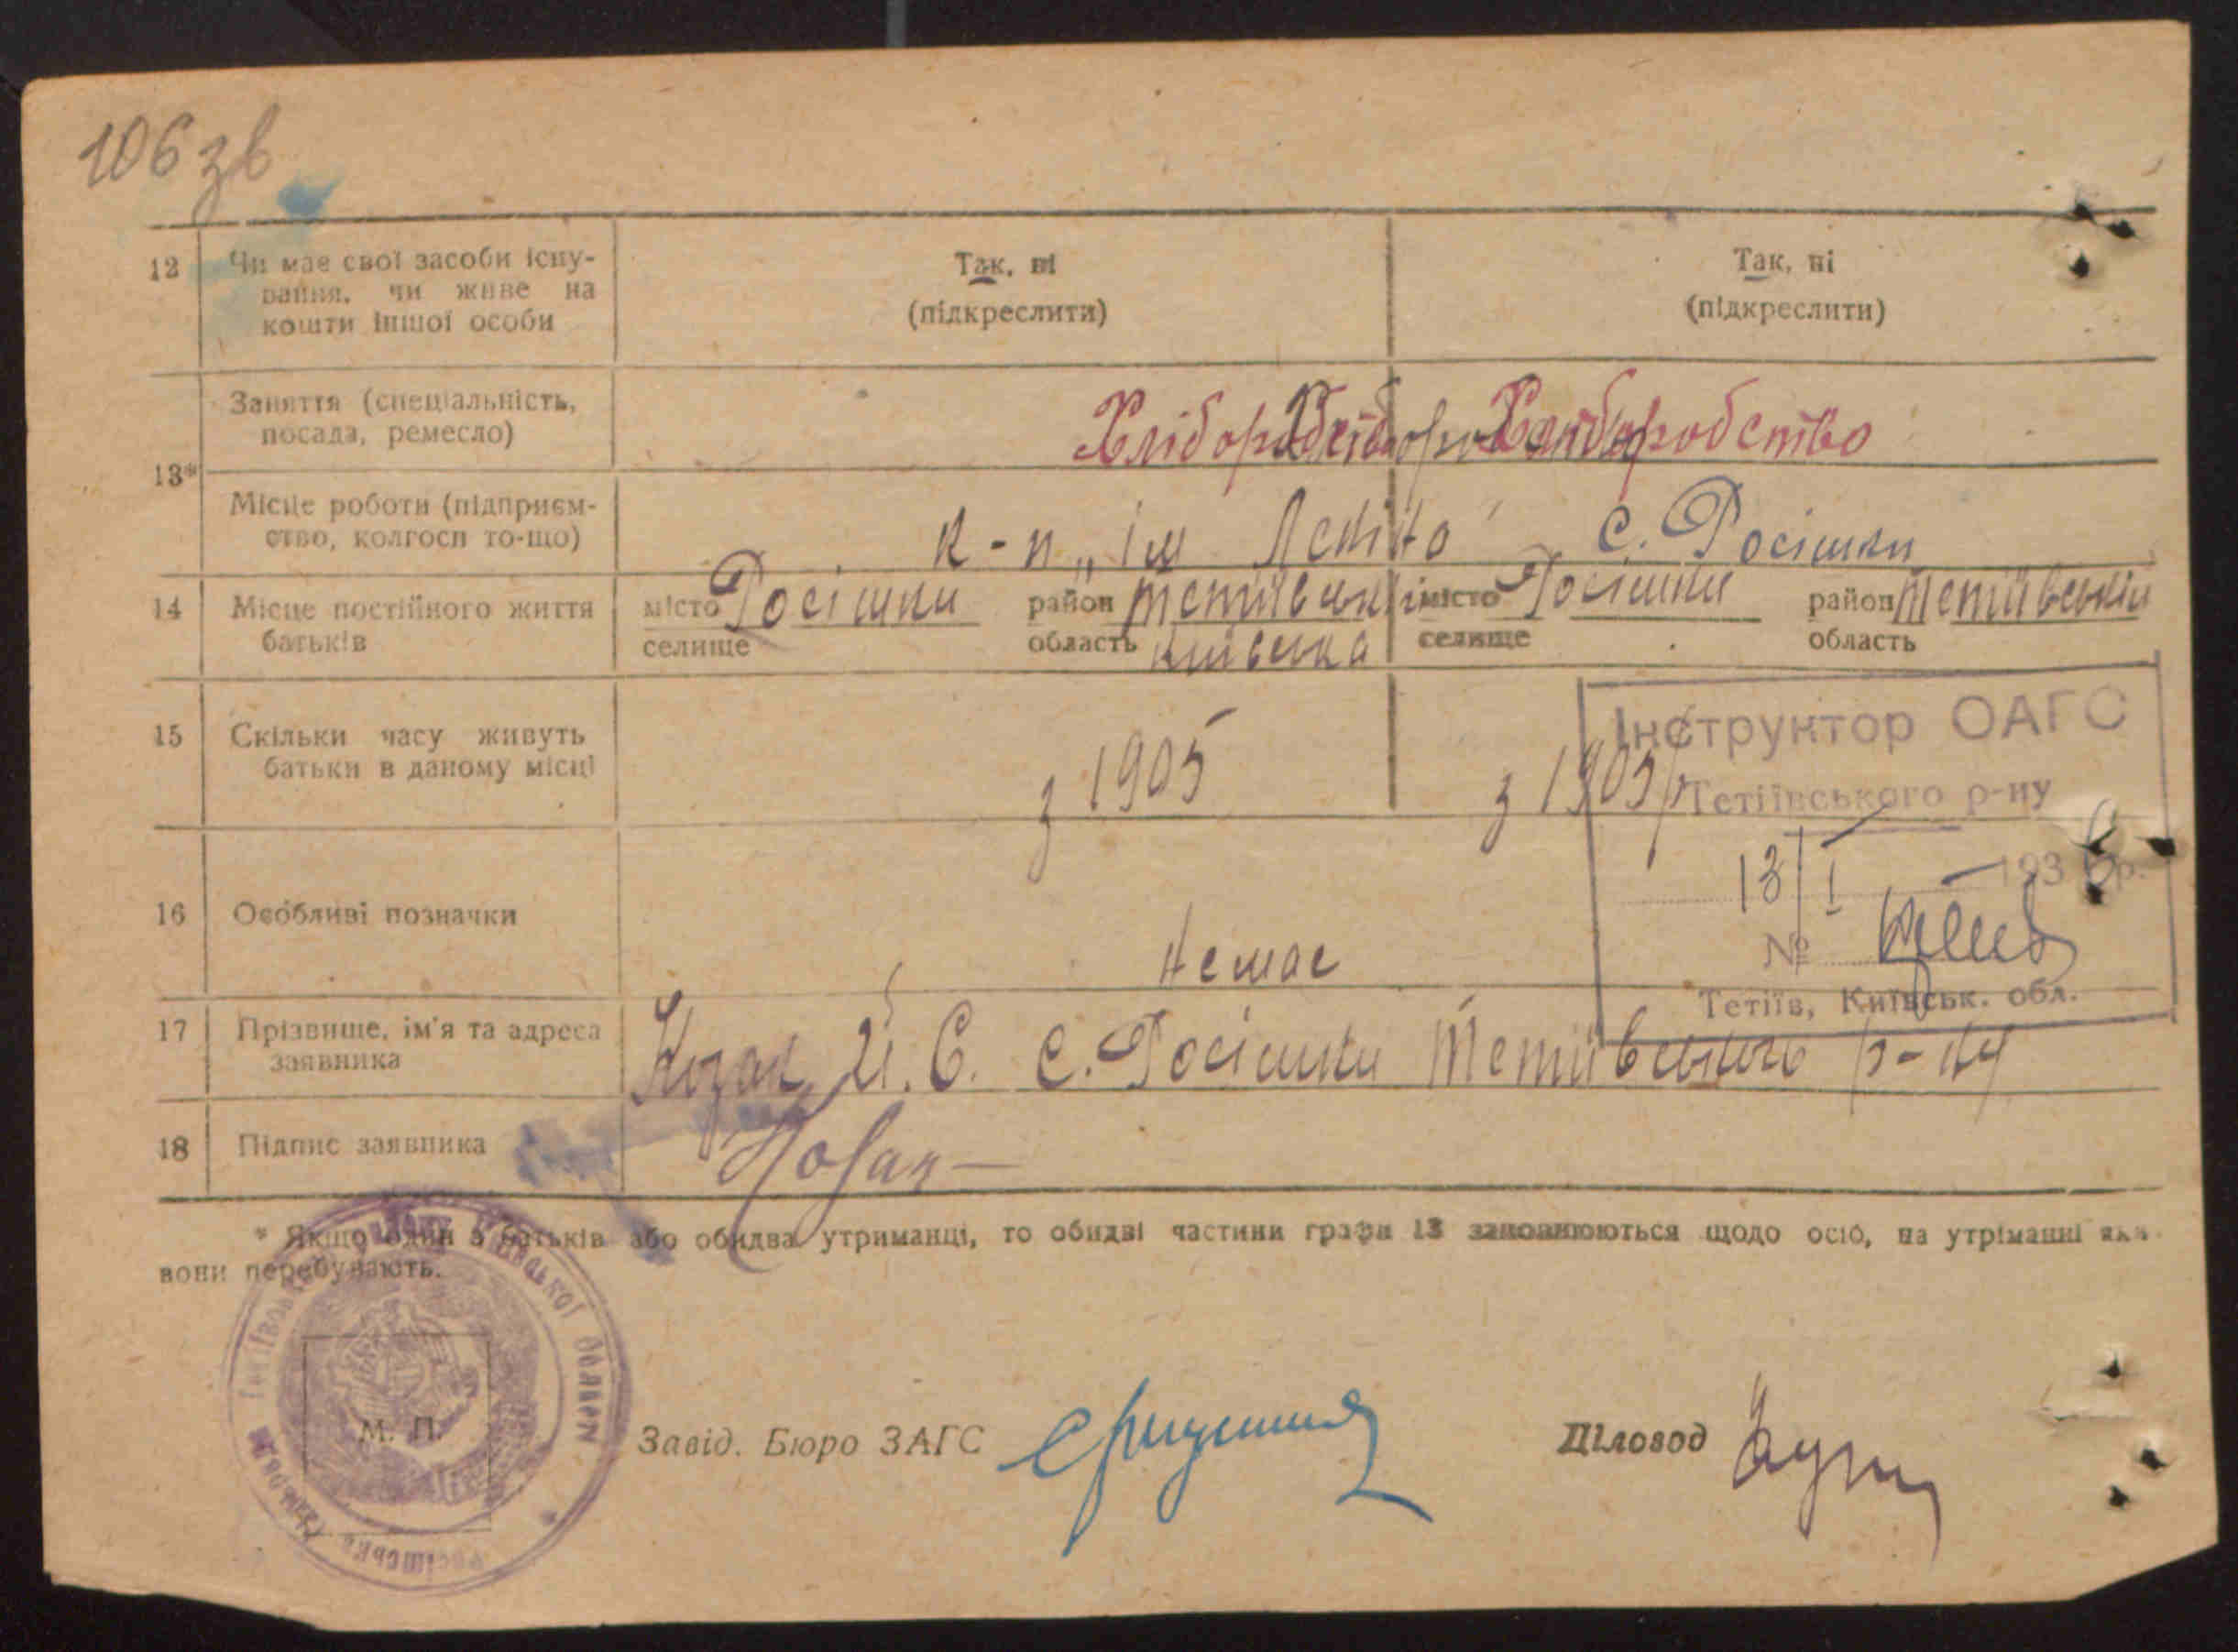 106 зв
12 Чи має свої засоби існу- Так, ні Так, ні
вання, чи живе на (підкреслити) (підкреслити)
кошти іншої особи
13* Заняття (спеціальність, Хліборобство
посада, ремесло)
Місце роботи (підприєм- к-п „ім Леніна" с. Росішки
ство, колгосп то-що)
14 Місце постійного життя місто Росішки район Тетіївський місто Росішки район Тетіївський
батьків селище область Київська селище область
15 Скільки часу живуть з 1905 з 1905 р
батьки в даному місці
Інструктор ОАГС
Тетіївського р-ну
13/I 193 р.
№
Тетіїв, Київськ. обл.
16 Особливі позначки Немає
17 Прізвище, ім'я та адреса Козак Й. С. с. Росішки Тетіївського р-ну
заявника
18 Підпис заявника Козак
* Якщо один з батьків або обидва утриманці, то обидві частини графи 13 заповнюються щодо осіб, на утріманні яких
вони перебувають.
М. П.
Завід. Бюро ЗАГС Діловод